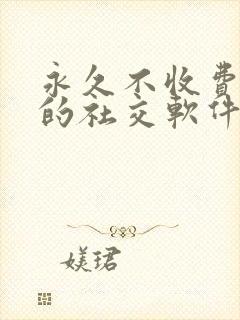 永久不收費
的社交軟件
媄珺